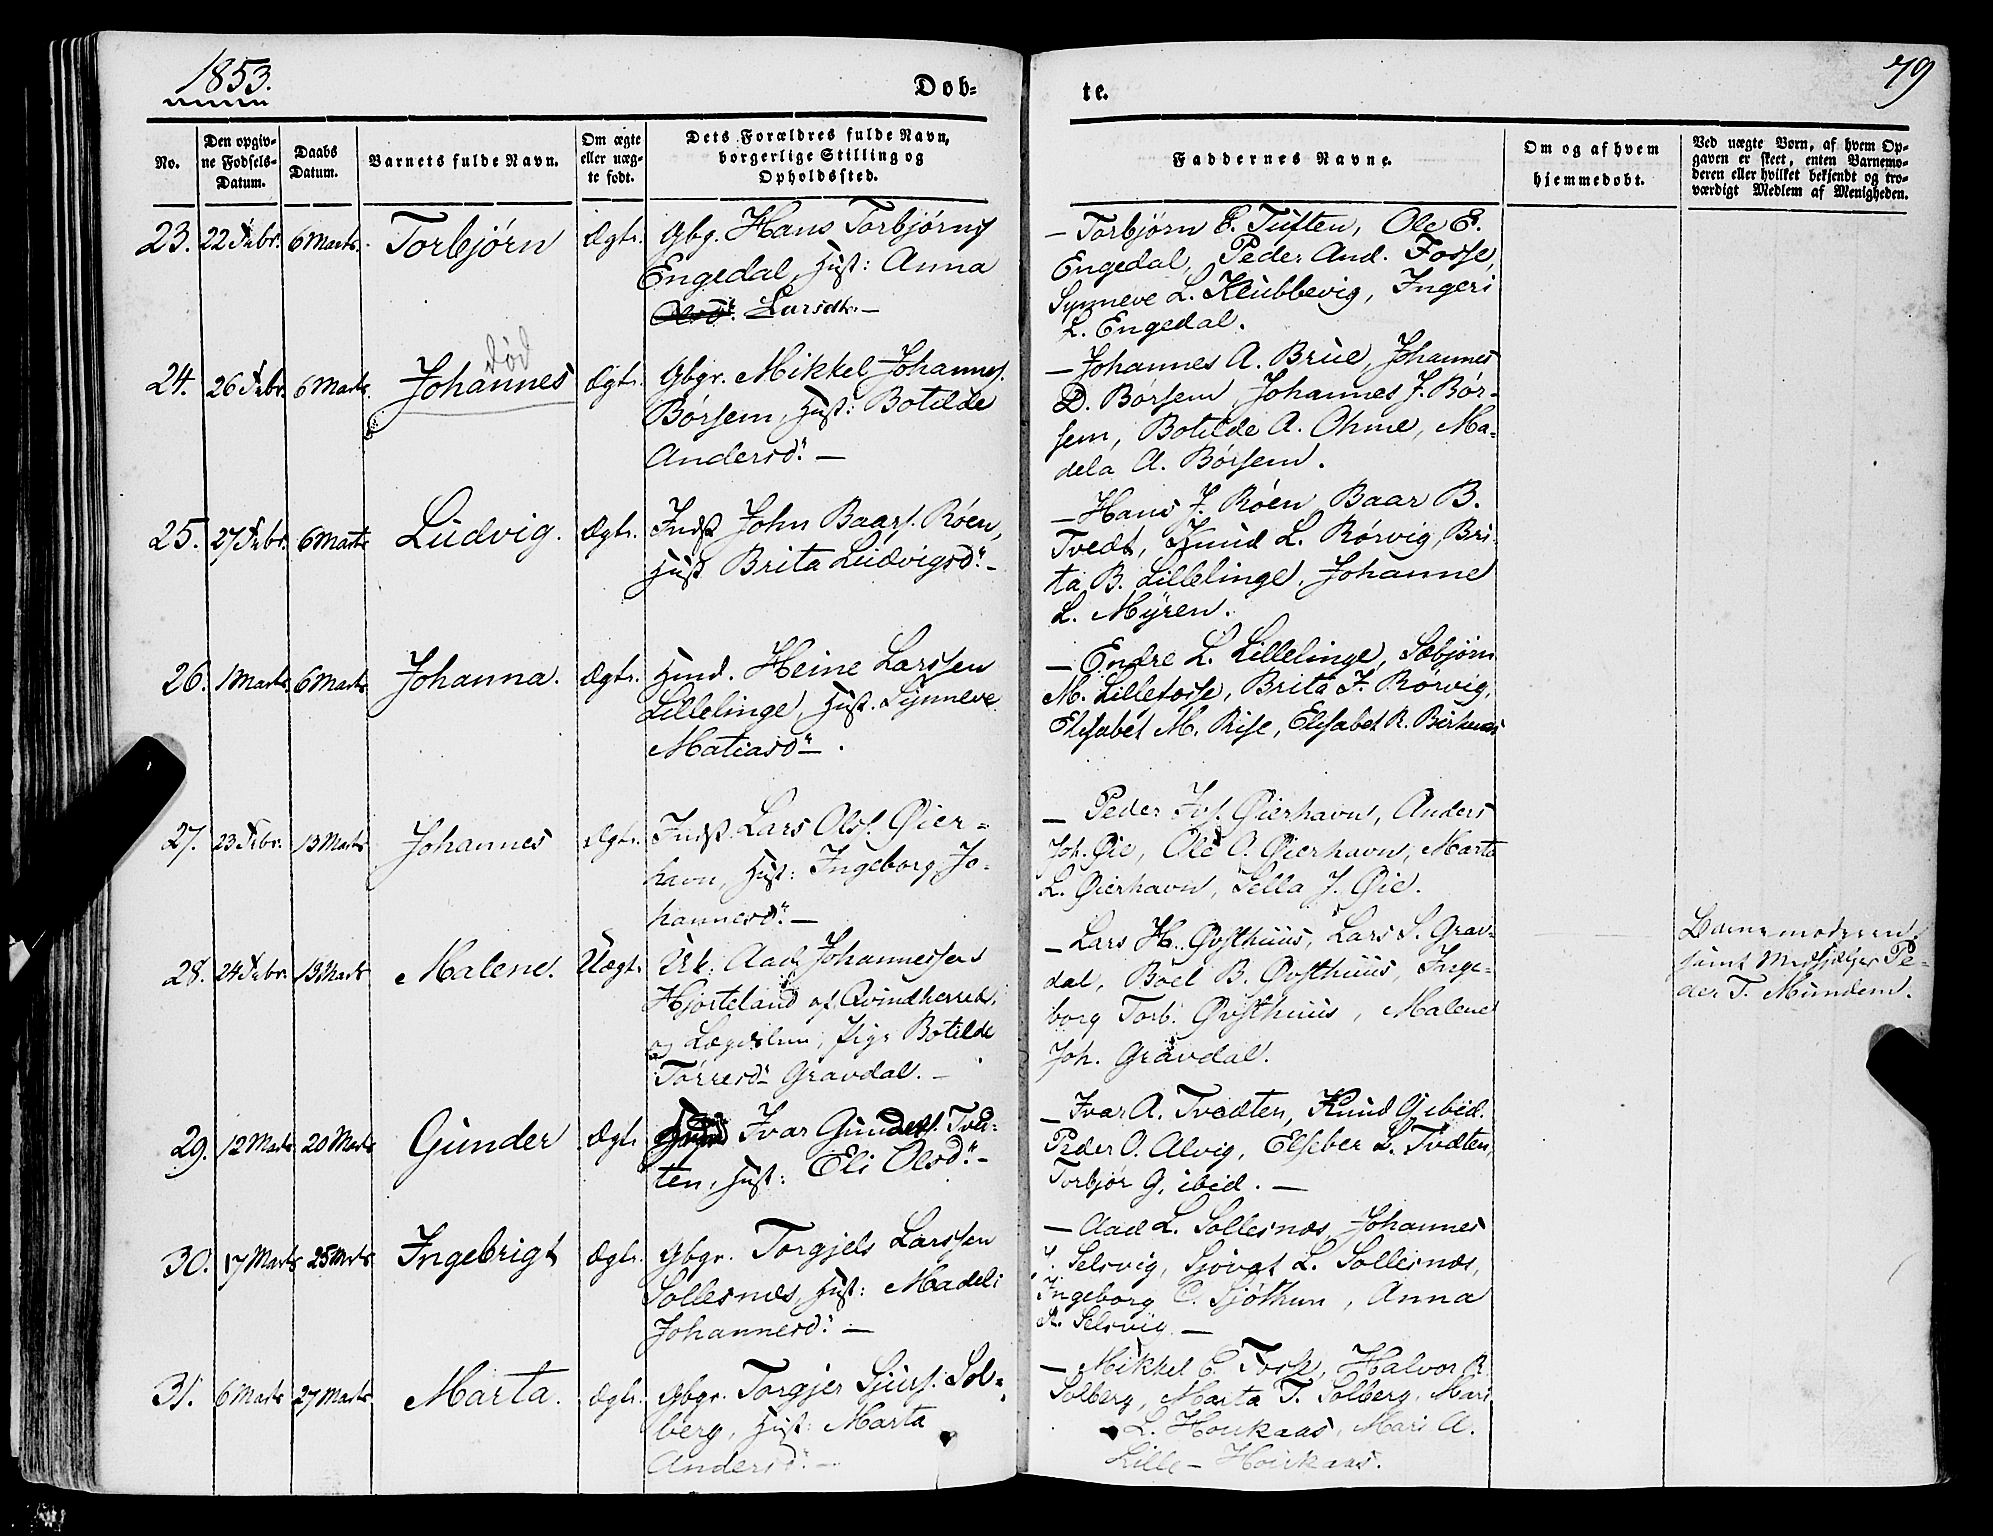 1853.
Døb-
te.
79
No.
Den opgiv-
ne Fødsels-
Datum.
Daabs
Datum.
Barnets fulde Navn.
Om ægte
eller uæg-
te født.
Dets Forældres fulde Navn,
borgerlige Stilling og
Opholdssted.
Faddernes Navne.
Om og af hvem
hjemmedøbt.
Ved uægte Børn, af hvem Op-
gaven er skeet, enten Barnemo-
deren eller hvilket bekjendt og tro-
værdigt Medlem af Menigheden.
23. 22 Febr. 6 Marts. Torbjørn Ægte. Gbg. Hans Torbjørns
Engedal, Hust: Anna
Olsd: Larsdtr. —
— Torbjørn E. Tuften, Ole E.
Engedal, Peder And. Fosse,
Synneve L. Klubbevig, Ingeri
L. Engedal.
død
24. 26 Febr. 6 Marts. Johannes Ægte. Gbgr. Mikkel Johannes.
Børsem, Hust: Botilde
Andersd: —
— Johannes A. Brue, Johannes
D. Børsem, Johannes J. Bør-
sem, Botilde A. Ohme, Ma-
dela A. Børsem.
25. 27 Febr. 6 Marts Ludvig. Ægte. Indst John Baars. Røen,
Hust Brita Ludvigsd: —
— Hans J. Røen, Baar B.
Tvedt, Knud L. Rørvig, Bri-
ta B. Lillelinge, Johanne
L. Myren.
26. 1 Marts. 6 Marts Johanna. Ægte. Husmd. Heine Larssen
Lillelinge, Hust. Synneve
Matiasd: — .
— Endre L. Lillelinge, Sæbjørn
M. Lilletosse, Brita J. Rørvig,
Elisabet M. Rise, Elisabet R. Birkenes
27. 23 Febr. 13 Marts Johannes Ægte. Indst. Lars Ols. Øier-
havn, Hust: Ingeborg Jo-
hannesd: —
— Peder Jos. Øierhavn, Anders
Joh. Øie, Ole O. Øierhavn, Marta
L. Øierhavn, Sella J. Øie.
28. 24 Febr. 13 Marts Malene. Uægte Uk: Aad Johannessen
Hjorteland af Qvindherred,
og Lægdslem, Pige Botilde
Tørresd: Gravdal. —
— Lars H. Øvsthuus, Lars S. Grav-
dal, Boel B. Øvsthuus, Inge-
borg Torb. Øvsthuus, Malene
Joh. Gravdal.
Barnemoderen,
samt Medhjelper Pe-
der T. Mundem.
29. 12 Marts 20 Marts Gunder Ægte Ivar Gunders. Tved-
ten, Hust: Eli Olsd: —
— Ivar A. Tvedten, Knud G. ibid.
Peder O. Alvig, Elseber L. Tvedten,
Torbjør G. ibid. —
30. 17 Marts 25 Marts Ingebrigt Ægte. Gbgr. Torgjels Larssen
Sollesnes, Hust: Madeli
Johannesd: —
— Aad L. Sollesnes, Johannes
J. Selsvig, Sjovat L. Sollesnes,
Ingeborg C. Sjøthun, Anna
A. Selsvig —
31. 6 Marts 27 Marts Marta. Ægte. Gbgr. Torgjer Sjurs. Sol-
berg, Hust: Marta
Andersd: —
— Mikkel C. Fosse, Halvor R.
Solberg, Marta T. Solberg, Mari
L. Houkaas, Mari A.
Lille-Houkaas.